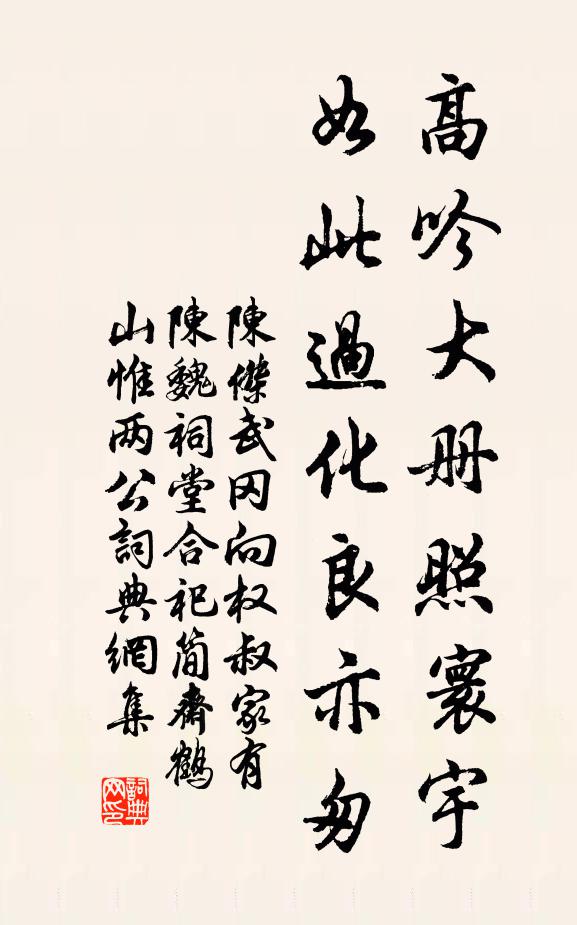 高吟大册照寰宇
如此過化良亦匆
陳傑武冈向权叔家有
陳魏祠堂合祀简齋鹤
山惟两公詞典網集
詞典网印